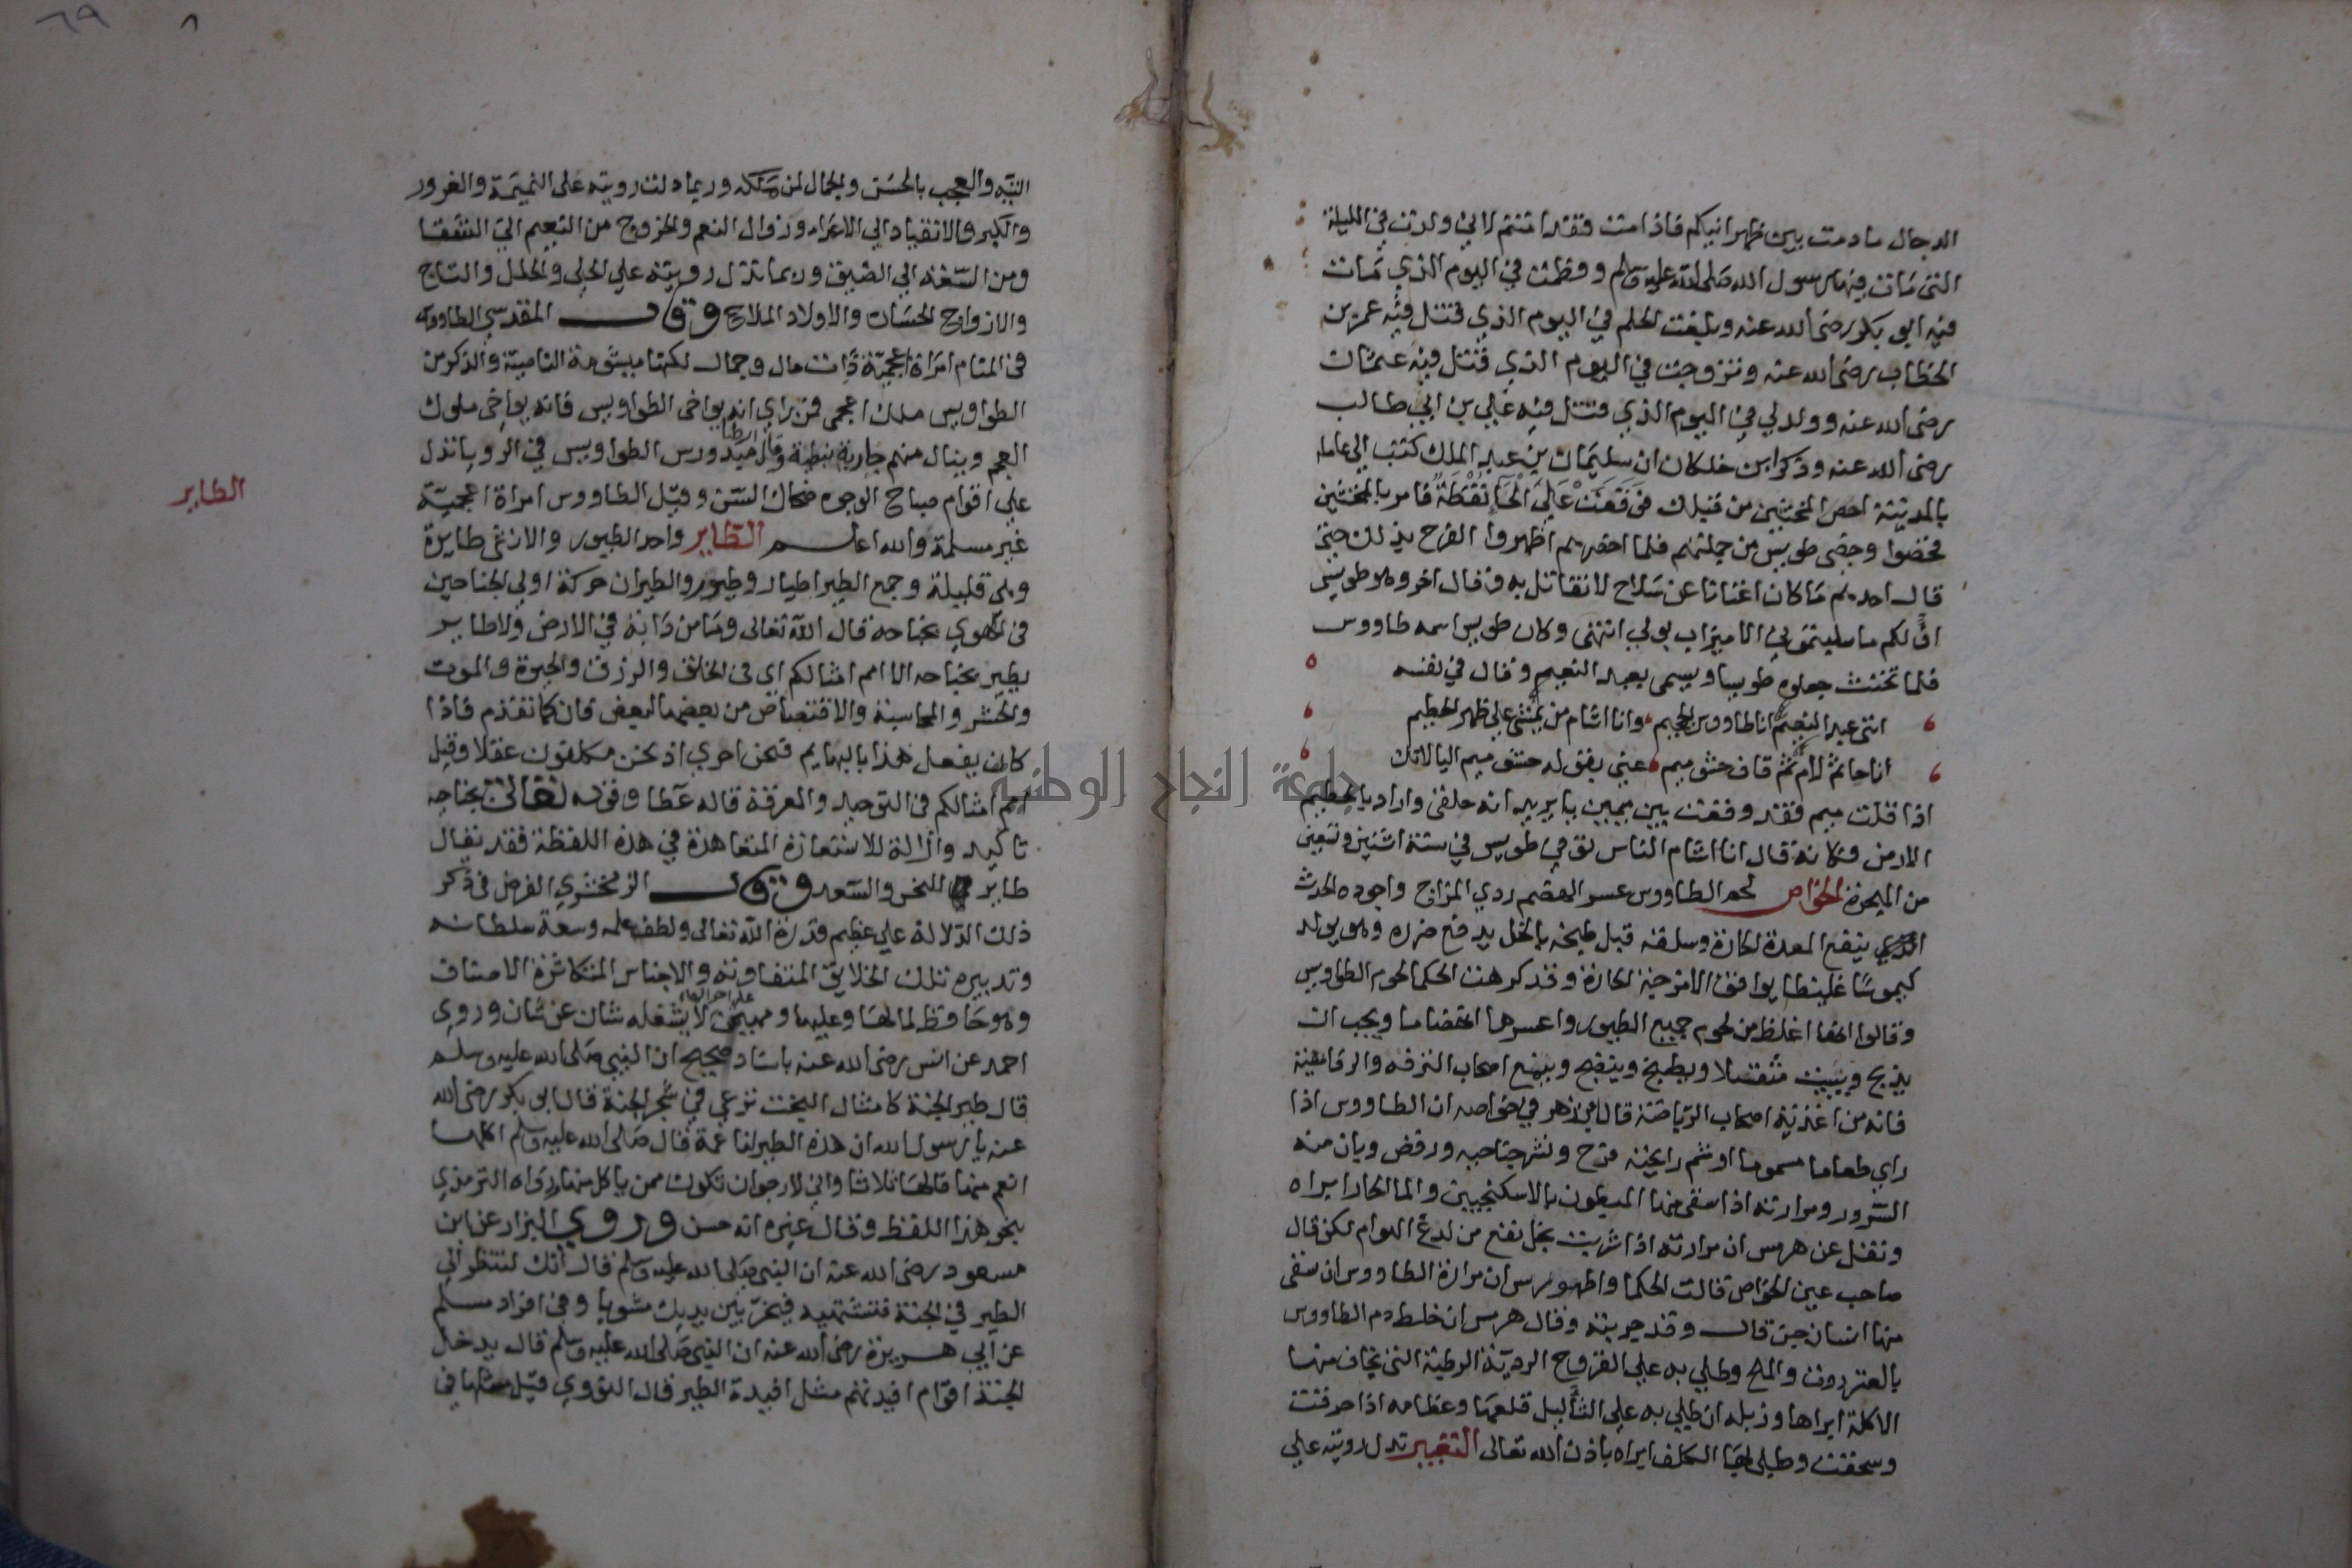 الدجال مادمت بين ظهرانيكم فاذا مت فقد امنتم لاني ولدت في الليلة
التي مات فيها رسول الله صلى الله عليه وسلم وفطمت في اليوم الذي مات
فيه ابو بكر رضى الله عنه وبلغت الحلم في اليوم الذي قتل فيه عمر بن
الخطاب رضى الله عنه وتزوجت في اليوم الذي قتل فيه عثمان
رضى الله عنه وولد لي في اليوم الذي قتل فيه علي بن ابي طالب
رضى الله عنه وذكر ابن خلكان ان سليمان بن عبد الملك كتب الى عامله
بالمدينة احص المخنثين من قبلك فوقعت على الحا نقطة فامر بالمخنثين
فخصوا وخصى طويس من جملتهم فلما اخصهم اظهروا الفرح بذلك حتى
قال احدهم ما كان اغنانا عن سلاح لا نقاتل به وقال اخر وهو طويس
اف لكم ما سلبتموني الا ميزاب بولي انتهى وكان طويس اسمه طاووس
فلما تخنث جعلوه طويسا ويسمى بعبد النعيم وقال في نفسه
انني عبد النعيم انا طاووس الجحيم وانا اشام من يمشي على ظهر الحطيم
انا حا ثم لام ثم قاف حشو ميم
اذا قلت ميم فقد وقعت بين ميمين يا يريد انه حلقى واراد بالحطيم
الارض وكانه قال انا اشام الناس توفي طويس في سنة اثنين وتسعين
من الهجرة الخواص لحم الطاووس عسر الهضم ردي المزاج واجوده الحدث
الذي ينفع المعدة الحارة وسلقه قبل طبخه بالخل يدفع ضرره وهو يولد
كيموسا غليظا يوافق الامزجة الحارة وقد كرهت الحكما لحوم الطواويس
وقالوا انها اغلظ من لحوم جميع الطيور واعسرها انهضاما ويجب ان
يذبح ويبيت مثقلا ويطبخ وينضج ويمنع اصحاب الترفه والرفاهية
فانه من اغذية اصحاب الرياضة قال ابن زهر في خواصه ان الطاووس اذا
راي طعاما مسموما او شم رايحته فرح ونشر جناحيه ورقص وبان منه
السرور ومرارته اذا سقى منها المبطون بالاسكنجبين والما الحار ابراه
ونقل عن هرمس ان مرارته اذا شربت بخل نفع من لدغ الهوام لكن قال
صاحب عين الخواص قالت الحكما واطهورس ان مرارة الطاووس ان سقى
منها انسان جن قال وقد جربته وقال هرمس ان خلط دم الطاووس
بالعنزروت والملح وطلي به على القروح الردية الرطبة التي يخاف منها
الاكلة ابراها وزبله ان طلي به على الثاليل قلعها وعظامه اذا حرقت
وسحقت وطلى بها الكلف ابراه باذن الله تعالى التعبير تدل رويته على
التيه والعجب بالحسن والجمال لمن ملكه وربما دلت رويته على النميمة والغرور
والكبر والانقياد الى الاعداء وزوال النعم والخروج من النعيم الى الشقا
ومن السعة الى الضيق وربما تدل رويته على الحلي والحلل والتاج
والازواج الحسان والاولاد الملاح وقال المقدسي الطاووس
في المنام امراة اعجمية ذات مال وجمال لكنها مشومة الناصية والذكر من
الطواويس ملك اعجمي فمن راي انه يواخي الطواويس فانه يواخي ملوك
العجم وينال منهم جارية نبطية وقال ارطاميدورس الطواويس في الرويا تدل
على اقوام صباح الوجوه ضحاك السن وقيل الطاووس امراة اعجمية
غير مسلمة والله اعلم الطاير واحد الطيور والانثى طايرة
الطاير
وهي قليلة وجمع الطير اطيار وطيور والطيران حركة اولي الجناحين
في الهوي بجناحه قال الله تعالى وما من دابة في الارض ولا طاير
يطير بجناحه الا امم امثالكم اي في الخلق والرزق والحيوة والموت
والحشر والمحاسبة والاقتصاص من بعضها لبعض كما تقدم فاذا
كان يفعل هذا بالبهايم فنحن احرى اذ نحن مكلفون عقلا وقيل
امم امثالكم في التوحيد والمعرفة قاله عطا وقوله تعالى بجناحيه
تاكيد وازالة للاستعارة المتعاهدة في هذه اللفظة فقد يقال
طاير للنحس والسعد وقال الزمخشري الغرض في ذكر
ذلك الدلالة على عظيم قدرة الله تعالى ولطف علمه وسعة سلطانه
وتدبيره تلك الخلايق المتفاوته والاجناس المتكاثرة الاصناف
وهو حافظ لما لها وعليها ومهيمن على احوالها لا يشغله شان عن شان وروى
احمد عن انس رضى الله عنه باسناد صحيح ان النبي صلى الله عليه وسلم
قال طير الجنة كامثال البخت ترعى في شجر الجنة قال ابو بكر رضى الله
عنه يا رسول الله ان هذه الطير لناعمة قال صلى الله عليه وسلم اكلها
انعم منها قالها ثلاثا واني لارجو ان تكون ممن ياكل منها رواه الترمذي
بنحو هذا اللفظ وقال غيره انه حسن وروي البزار عن ابن
مسعود رضى الله عنه ان النبي صلى الله عليه وسلم قال انك لتنظر الى
الطير في الجنة فتشتهيه فيخر بين يديك مشويا وفي افراد مسلم
عن ابي هريرة رضى الله عنه ان النبي صلى الله عليه وسلم قال يدخل
الجنة اقوام افيدتهم مثل افيدة الطير قال النووي قيل مثلها في
٦٩
٨
جامعة النجاح الوطنية